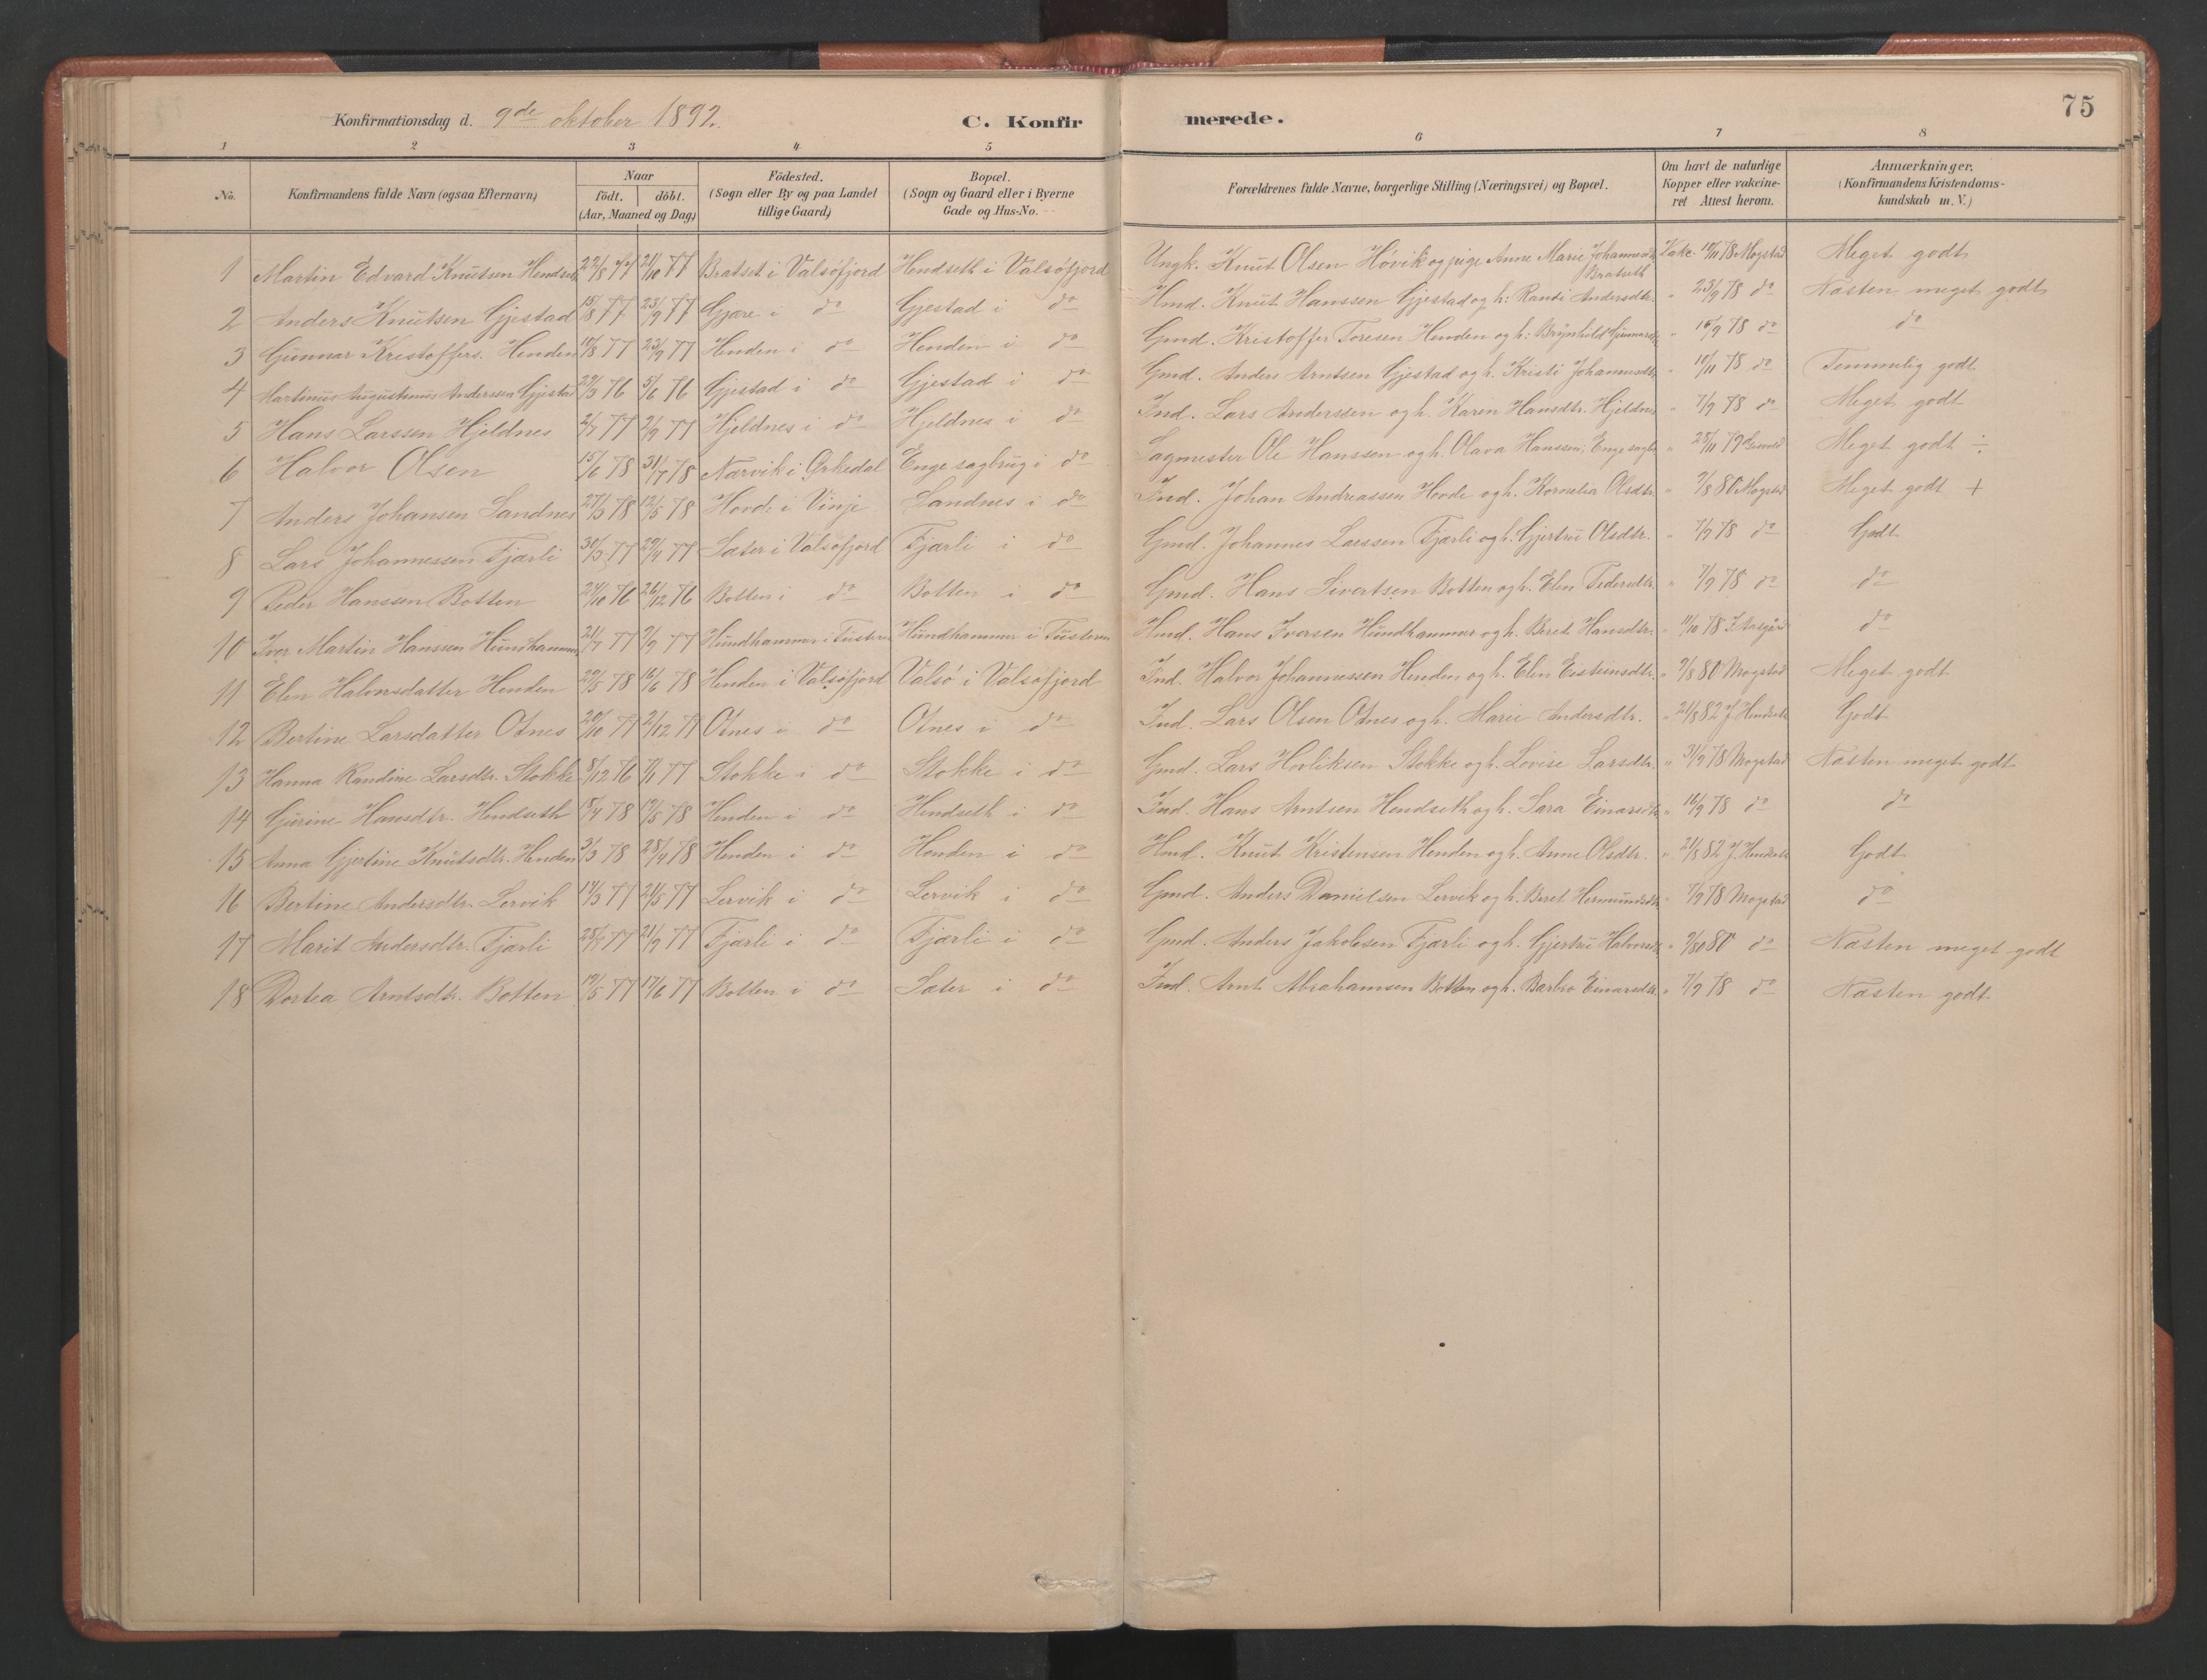 75
Konfirmationsdag d. 9de oktober 1892.
C. Konfirmerede.
1 2 3 4 5 6 7 8
No. Konfirmandens fulde Navn (ogsaa Efternavn) Naar födt. döbt. (Aar, Maaned og Dag) Födested. (Sogn eller By og paa Landet tillige Gaard) Bopæl. (Sogn og Gaard eller i Byerne Gade og Hus-No. Forældrenes fulde Navne, borgerlige Stilling (Næringsvei) og Bopæl. Om havt de naturlige Kopper eller vakcineret Attest herom. Anmærkninger. (Konfirmandens Kristendomskundskab m. V.)
1 Martin Edvard Knutsen Hendset 22/8 77 21/10 77 Bratset i Valsöfjord Hendseth i Valsöfjord Ungk. Knut Olsen Høvik og pige Anne Marie Johannesdtr. Bratseth Vakc. 10/11 78 Mogstad Meget godt
2 Anders Knutsen Gjestad 15/8 77 23/9 77 Gjøre i do Gjestad i do Hmd. Knut Hanssen Gjestad og h: Randi Andersdtr. " 23/9 78 do Næsten meget godt
3 Gunnar Kristoffers. Henden 19/8 77 23/9 77 Henden i do Henden i do Gmd. Kristoffer Toresen Henden og h: Brynhild Gunnarsdtr. " 16/9 78 do do
4 Martinus Augustinus Anderssen Gjestad 29/3 76 5/6 76 Gjestad i do Gjestad i do Gmd. Anders Arntsen Gjestad og h. Kristi Johannesdtr. " 10/11 78 do Temmelig godt
5 Hans Larssen Hjeldnes 2/7 77 2/9 77 Hjeldnes i do Hjeldnes i do Ind. Lars Anderssen og h. Karen Hansdtr. Hjeldnes " 7/9 78 do Meget godt
6 Halvor Olsen 15/6 78 31/7 78 Nærvik i Orkedal Enge sagbrug i do Sagmester Ole Hanssen og h. Olava Hanssen, Enge sagbr. " 28/11 79 Meget godt ÷
7 Anders Johansen Sandnes 27/3 78 12/5 78 Hovde i Vinje Sandnes i do Ind. Johan Andreassen Hovde og h. Kornelia Olsdtr. " 9/8 80 Mogstad Meget godt +
8 Lars Johannessen Fjærli 30/3 77 29/4 77 Sæter i Valsöfjord Fjærli i do Gmd. Johannes Larssen Fjærli og h. Gjertru Olsdtr. " 7/9 78 do Godt
9 Peder Hanssen Botten 24/10 76 26/12 76 Botten i do Botten i do Gmd. Hans Sivertsen Botten og h. Elen Pedersdtr. " 7/9 78 do do
10 Iver Martin Hanssen Hundhammer 21/7 77 9/9 77 Hundhammer i Tusteren Hundhammer i Tusteren Hmd. Hans Iversen Hundhammer og h. Beret Hansdtr. " 11/10 78 do
11 Elen Halvorsdatter Henden 29/5 78 16/6 78 Henden i Valsöfjord Valsö i Valsöfjord Ind. Halvor Johannessen Henden og h. Elen Eisteinsdtr. " 9/8 80 Mogstad Meget godt
12 Bertine Larsdatter Otnes 20/10 77 2/12 77 Otnes i do Otnes i do Ind. Lars Olsen Otnes og h. Marie Andersdtr. " 21/8 82 J. Hendseth Godt
13 Hanna Randine Larsdtr. Stokke 8/12 76 7/1 77 Stokke i do Stokke i do Gmd. Lars Hovliksen Stokke og h. Lovise Larsdtr. " 3/9 78 Mogstad Næsten meget godt
14 Gurine Hansdtr. Hendseth 15/4 78 19/5 78 Henden i do Hendseth i do Ind. Hans Arntsen Hendseth og h. Sara Einarsdtr. " 16/9 78 do do
15 Anna Gjertine Knutsdtr. Henden 3/3 78 28/4 78 Henden i do Henden i do Hmd. Knut Kristensen Henden og h. Anne Olsdtr. " 21/8 82 J. Hendseth Godt
16 Bertine Andersdtr. Lervik 14/3 77 21/5 77 Lervik i do Lervik i do Gmd. Anders Danielsen Lervik og h. Beret Hermundsdtr. " 7/9 78 Mogstad do
17 Marit Andersdtr. Fjærli 77 21/9 77 Fjærli i do Fjærli i do Gmd. Anders Jakobsen Fjærli og h. Gjertru Halvorsdtr. " 80 do Næsten meget godt
18 Dortea Arntsdtr. Botten 19/5 77 17/6 77 Botten i do Sæter i do Ind. Arnt Abrahamsen Botten og h. Barbro Einarsdtr. " 7/9 78 do Næsten godt